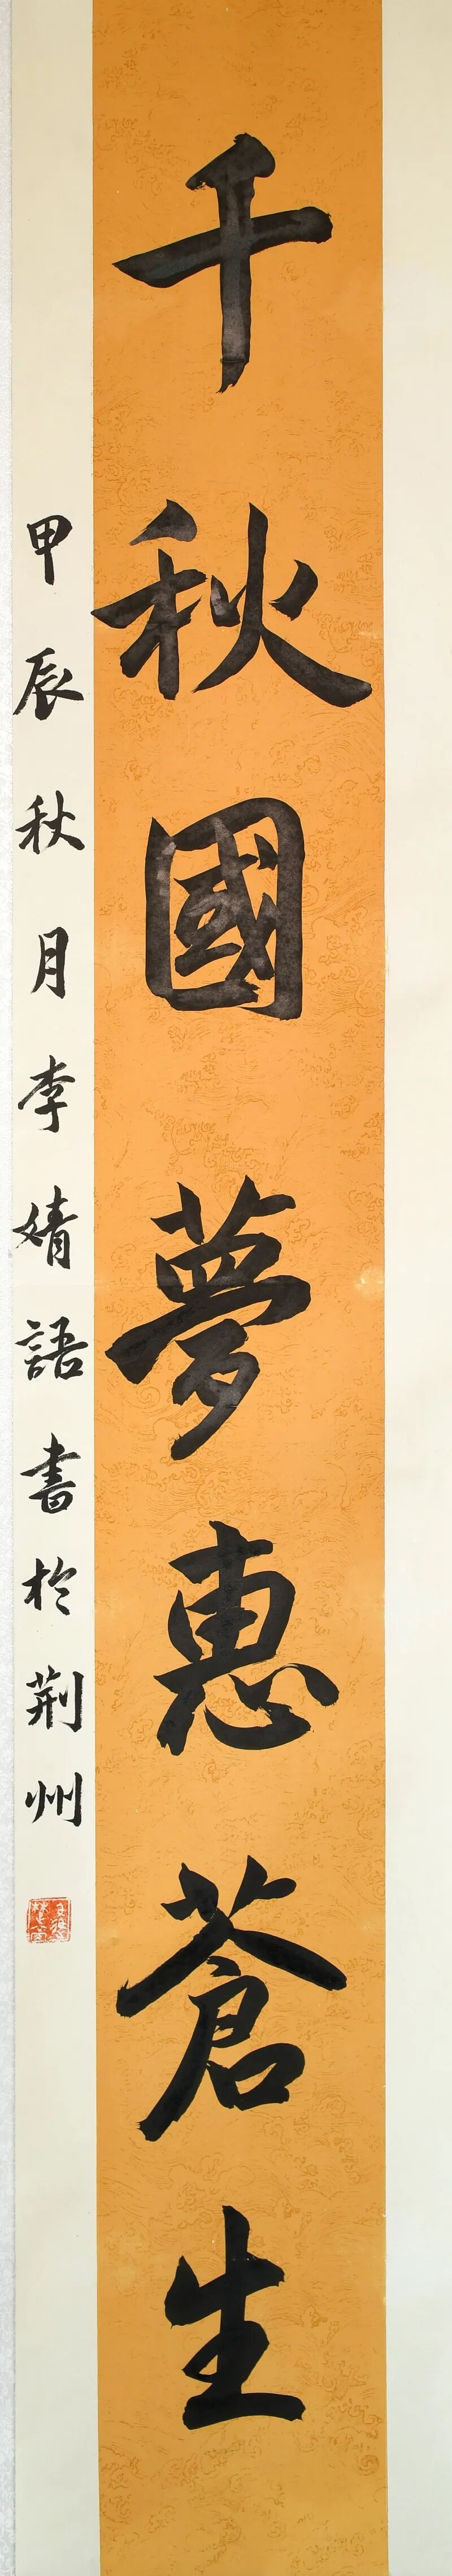 千秋國夢惠蒼生
甲辰秋月李婧語書於荆州